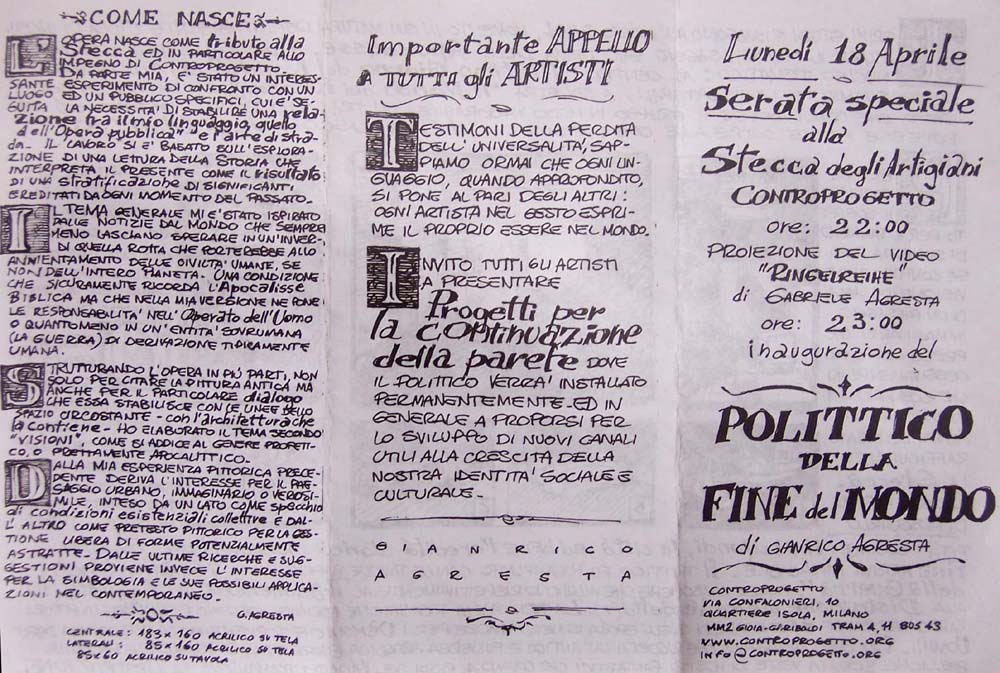 COME NASCE
L'OPERA NASCE COME tributo alla
Stecca ED IN PARTICOLARE ALLO
IMPEGNO DI CONTROPROGETTO.
DA PARTE MIA, E' STATO UN INTERES-
SANTE ESPERIMENTO DI CONFRONTO CON UN
LUOGO ED UN PUBBLICO SPECIFICI, CUI E' SE-
GUITA LA NECESSITA' DI STABILIRE UNA rela-
zione tra il mio linguaggio, quello
dell'"Opera pubblica" e l'arte di stra-
da. IL LAVORO SI E' BASATO SULL'ESPLORA-
ZIONE DI UNA LETTURA DELLA STORIA CHE
INTERPRETA IL PRESENTE COME IL risultato
DI UNA stratificazione DI SIGNIFICANTI
EREDITATI DA OGNI MOMENTO DEL PASSATO.
IL TEMA GENERALE MI E' STATO ISPIRATO
DALLE NOTIZIE DAL MONDO CHE SEMPRE
MENO LASCIANO SPERARE IN UN'INVER-
DI QUELLA ROTTA CHE PORTEREBBE ALLO
ANNIENTAMENTO DELLE CIVILTA' UMANE, SE
NON DELL'INTERO PIANETA. UNA CONDIZIONE
CHE SICURAMENTE RICORDA L'Apocalisse
BIBLICA MA CHE NELLA MIA VERSIONE NE PONE
LE RESPONSABILITA' NELL'Operato dell'Uomo
O QUANTOMENO IN UN'ENTITA' SOVRUMANA
(LA GUERRA) DI DERIVAZIONE TIPICAMENTE
UMANA.
STRUTTURANDO L'OPERA IN PIÙ PARTI, NON
SOLO PER CITARE LA PITTURA ANTICA MA
ANCHE PER IL PARTICOLARE dialogo
CHE ESSA STABILISCE CON LE LINEE DELLO
SPAZIO CIRCOSTANTE - con l'architettura che
la contiene - HO ELABORATO IL TEMA SECONDO
"VISIONI", COME SI ADDICE AL GENERE PROFETI-
CO, O PRETTAMENTE APOCALITTICO.
DALLA MIA ESPERIENZA PITTORICA PRECE-
DENTE DERIVA L'INTERESSE PER IL PAE-
SAGGIO URBANO, IMMAGINARIO O VEROSI-
MILE, INTESO DA UN LATO COME specchio
di condizioni esistenziali collettive E DAL-
L'ALTRO COME PRETESTO PITTORICO PER LA GES-
TIONE LIBERA DI FORME POTENZIALMENTE
ASTRATTE. DALLE ULTIME RICERCHE E SUG-
GESTIONI PROVIENE INVECE L'INTERESSE
PER LA SIMBOLOGIA E LE SUE POSSIBILI APPLICA-
ZIONI NEL CONTEMPORANEO.
G. AGRESTA
CENTRALE: 183 x 160 ACRILICO SU TELA
LATERALI: 85 x 160 ACRILICO SU TELA
85 x 60 ACRILICO SU TAVOLA
Importante APPELLO
A TUTTI gli ARTISTI
TESTIMONI DELLA PERDITA
DELL'UNIVERSALITA', SAP-
PIAMO ORMAI CHE OGNI LIN-
GUAGGIO, QUANDO APPROFONDITO,
SI PONE AL PARI DEGLI ALTRI:
OGNI ARTISTA NEL GESTO ESPRI-
ME IL PROPRIO ESSERE NEL MONDO.
INVITO TUTTI GLI ARTISTI
A PRESENTARE
Progetti per
la continuazione
della parete DOVE
IL POLITTICO VERRA' INSTALLATO
PERMANENTEMENTE - ED IN
GENERALE A PROPORSI PER
LO SVILUPPO DI NUOVI CANALI
UTILI ALLA CRESCITA DELLA
NOSTRA IDENTITA' SOCIALE E
CULTURALE.
GIANRICO
AGRESTA
Lunedì 18 Aprile
Serata speciale
alla
Stecca degli Artigiani
CONTROPROGETTO
ore: 22:00
PROIEZIONE DEL VIDEO
"RINGELREIHE"
di GABRIELE AGRESTA
ore: 23:00
inaugurazione del
POLITTICO
DELLA
FINE del MONDO
di GIANRICO AGRESTA
CONTROPROGETTO
VIA CONFALONIERI, 10
QUARTIERE ISOLA, MILANO
MM2 GIOIA-GARIBALDI TRAM 4, 11 BUS 43
WWW.CONTROPROGETTO.ORG
INFO@CONTROPROGETTO.ORG